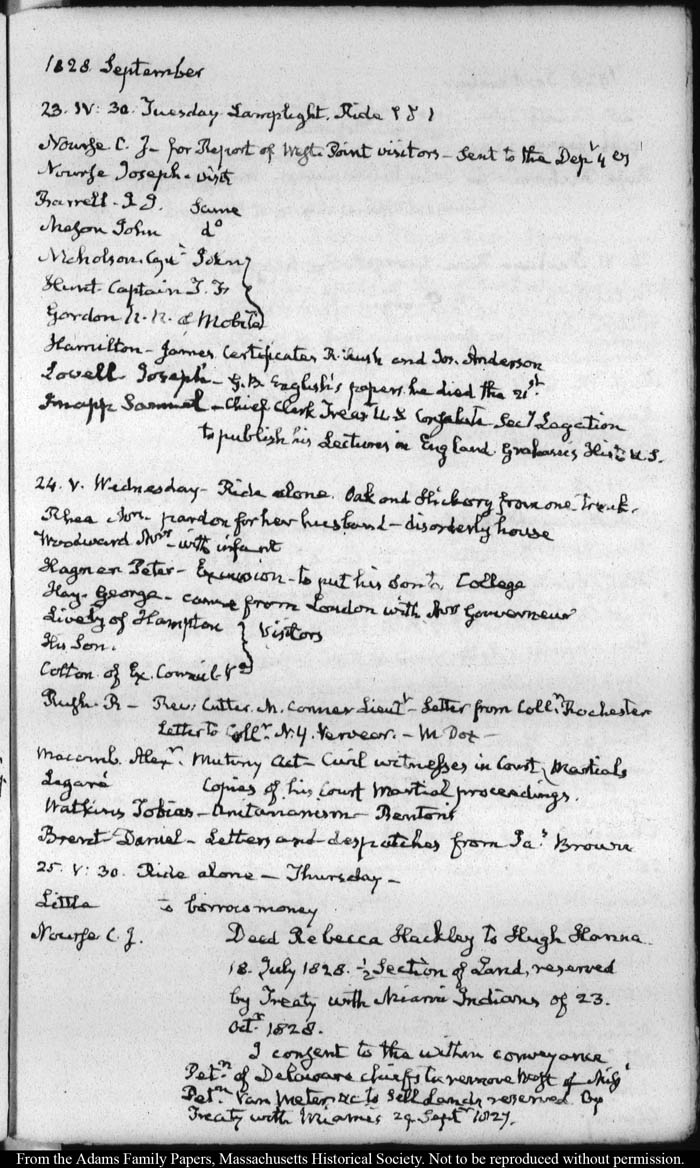 1828 September
23. IV: 30. Tuesday. Lamplight. Ride
Nourse C. J. – for Report of West Point visitors – sent to the Dept.
Nourse Joseph – visit
Barrell. Same
Mason John do
Nicholson. Capt. John
Hunt. Captain T. F.
Gordon of Mobile
Hamilton – James Certificates R. Rush and Jos. Anderson
Lovell Joseph – G. B. English's papers. he died the 21st.
Knapp Samuel – Chief Clerk Treasy U S Consulate Secy Legation
to publish his Lectures in England. Grahame's Hist: U.S.
24. V. Wednesday – Ride alone. Oak and Hickory from one Trunk.
Rhea Mrs. pardon for her husband – disorderly house
Woodward Mrs. – with infant
Hagner Peter – Excursion – to put his Son to College
Hay. George – came from London with Mrs Gouverneur
Lively of Hampton } Visitors
His Son.
Colton of Ex. Council Va
Rush. R – Rev: Cutter. M. Conner Lieutt – Letter from Collr. Rochester
Letter to Collr. N. Y. – M. Dox –
Macomb. Alexr. Mutiny Act – Civil witnesses in Court Martials
Legaré Copies of his Court Martial proceedings.
Watkins Tobias – Unitarianism – Benton's
Brent Daniel – Letters and despatches from Jas. Brown
25. V: 30. Ride alone – Thursday –
Little to borrow money
Nourse C. J. Deed Rebecca Hackley to Hugh Hanna
18. July 1828. ½ Section of Land, reserved
by Treaty with Miami Indians of 23.
Octr. 1828.
I consent to the within conveyance
Petn. of Delaware chiefs to remove West of Missi
Petn. Van Meter &c to sell Lands reserved by
Treaty with Miamis 29 Septr. 1827.
From the Adams Family Papers, Massachusetts Historical Society. Not to be reproduced without permission.